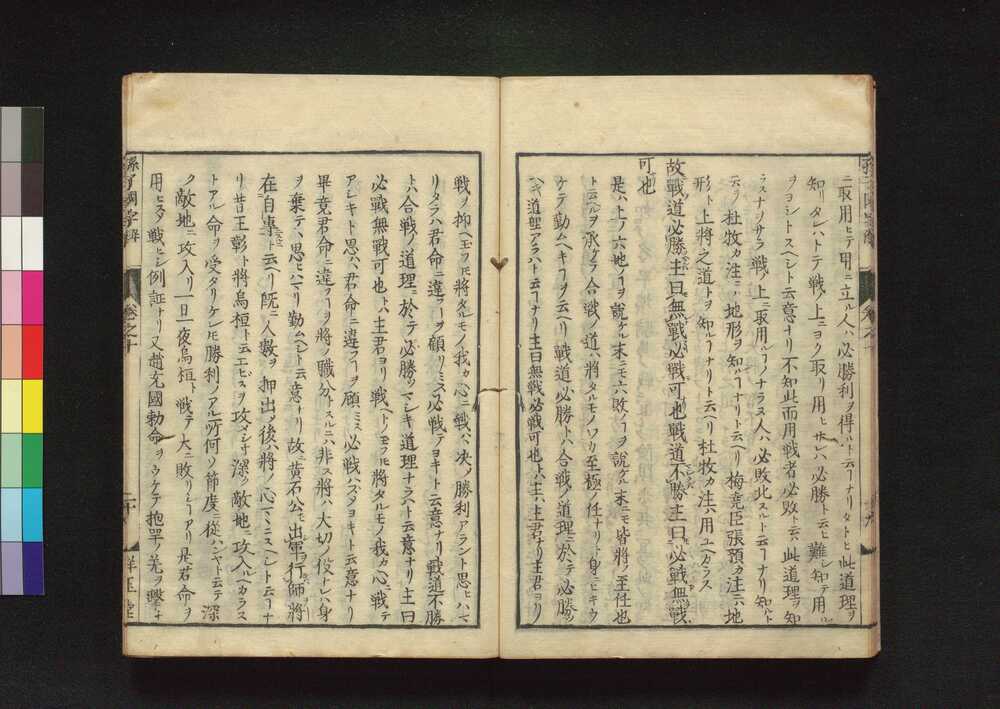 ニ取用ヒテ用ニ立ル人ハ必勝利ヲ得ルト云フナリタトヒ此道理ヲ
知リタレハトテ戦ノ上ニヨク取リ用ヒサレハ必勝ト云ヒ難シ知テ用ル
ヲヨシトスヘシト云意ナリ不知此而用戦者必敗ト云ハ此道理ヲ知
ラスナサラ戦ノ上ニ取用ルコノナラヌ人ハ必敗北スルト云フナリ知ルト
云ヲ杜牧カ注ニハ地形ヲ知ルナリト云リ梅堯臣張預カ注ニハ地
形ト上将之道トヲ知ルナリト云ヘリ杜牧カ注ハ用ユヘカラス
故戰道必勝主曰無戰必戰可也戰道不勝主曰必戰無戰
可也
是ハ上ノ六地ノヿヲ説ケル末ニモ六敗ノヿヲ説ケル末ニモ皆將ノ至任也
ト云ヘルヲ承テ合戰ノ道ハ將タルモノノ至極ノ任ナリト身ニヒキウ
ケテ勤ムヘキヿヲ云ヘリ戰道必勝トハ合戰ノ道理ニ於テ必勝
ヘキ道理アラハト云フナリ主曰無戰必戰可也トハ主ハ主君ナリ主君ヨリ
戰ヲ抑ヘ玉フ圧將タルモノ我カ心ニ戰ハヽ决メ勝利アラント思ヒハマ
リタラハ君命ニ違フヿヲ顧リミス必戰テヨキト云意ナリ戰道不勝
トハ合戰ノ道理ニ於テ必勝ツマシキ道理ナラハト云意ナリ主曰
必戰無戰可也トハ主君ヨリ戰ヘトノ玉フ圧將タルモノ我カ心ニ戰テ
アシキト思ハヽ君命ニ違フヿヲ顧ミス必戰ハズメヨキト云意ナリ
畢竟君命ニ違フヿヲ將ノ職分トスルニハ非ス將ハ大切ノ役ナレハ身
ヲ棄テ思ヒハマリ勤ムヘシト云意ナリ故ニ黄石公モ出軍行師將
在自專ト云ヘリ既ニ人數ヲ押出シ後ハ將ノ心マヽニスヘシト云フナ
リ昔王彰ト將烏桓ト云エビスヲ攻メシニ深ク敵地ニ攻入ルヘカラス
トアル命ヲ受タリケレ圧勝利ノアル所何ソ節度ニ從ハンヤト云テ深
ク敵地ニ攻入リ一日一夜烏桓ト戰テ大ニ敗リシヿアリ是君命ヲ
用ヒスメ戰ヒシ例証ナリ又趙充國勅命ヲウケテ抱罕ノ羌ヲ撃ナ
孫子國字解
卷之十
二十